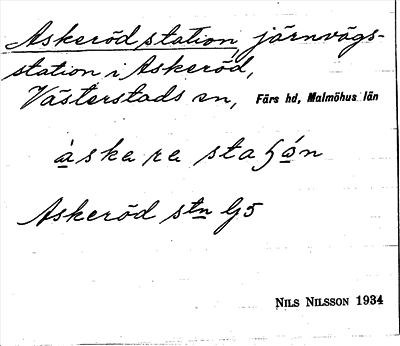 Askeröd station, järnvägs-
station i Askeröd,
Västerstads sn, Färs hd, Malmöhus län
àskera staɧón
Askeröd stn
NILS NILSSON 1934